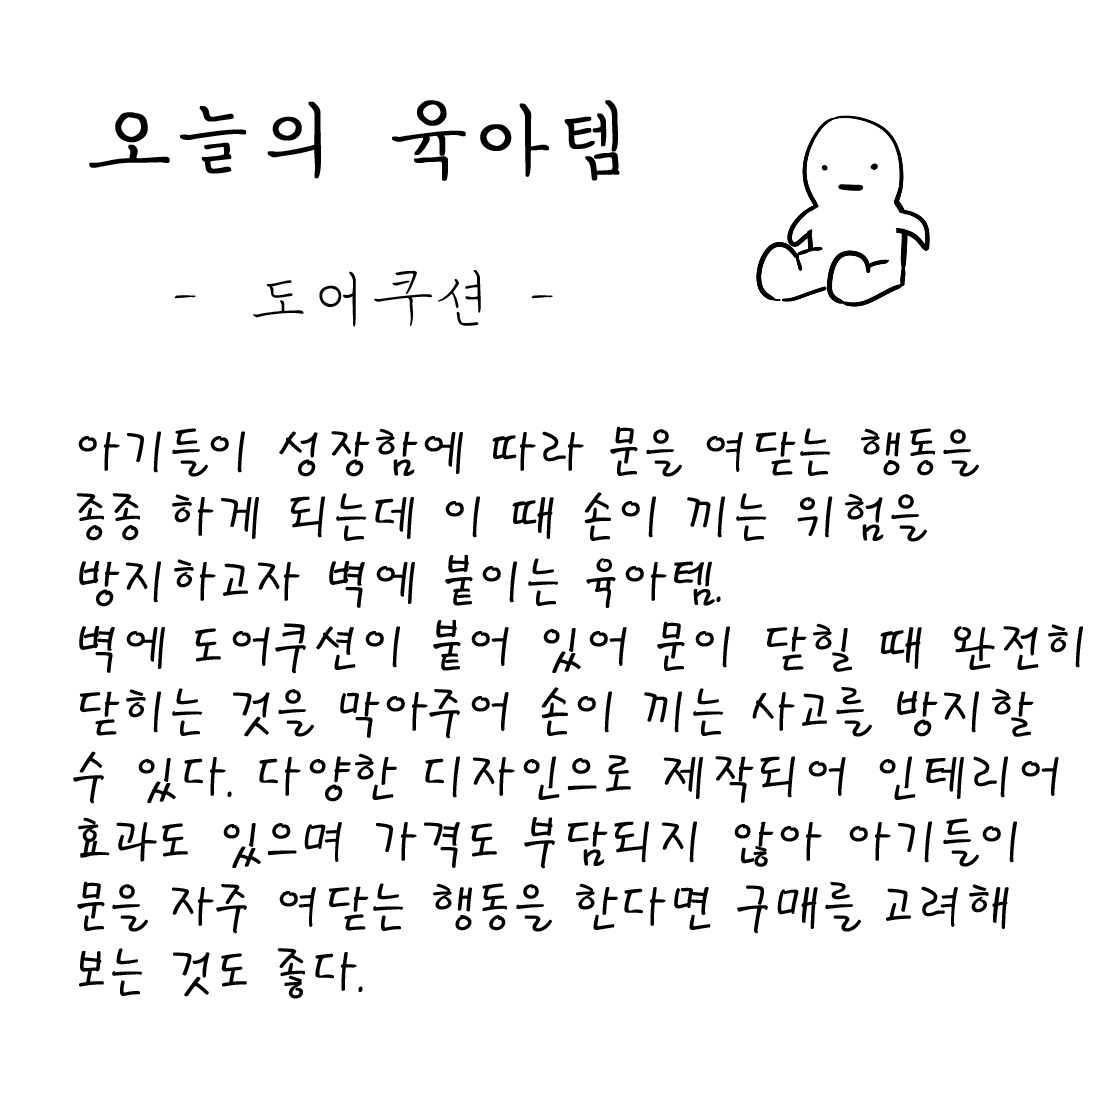 오늘의 육아템
- 도어쿠션 -
아기들이 성장함에 따라 문을 여닫는 행동을
종종 하게 되는데 이 때 손이 끼는 위험을
방지하고자 벽에 붙이는 육아템.
벽에 도어쿠션이 붙어 있어 문이 닫힐 때 완전히
닫히는 것을 막아주어 손이 끼는 사고를 방지할
수 있다. 다양한 디자인으로 제작되어 인테리어
효과도 있으며 가격도 부담되지 않아 아기들이
문을 자주 여닫는 행동을 한다면 구매를 고려해
보는 것도 좋다.